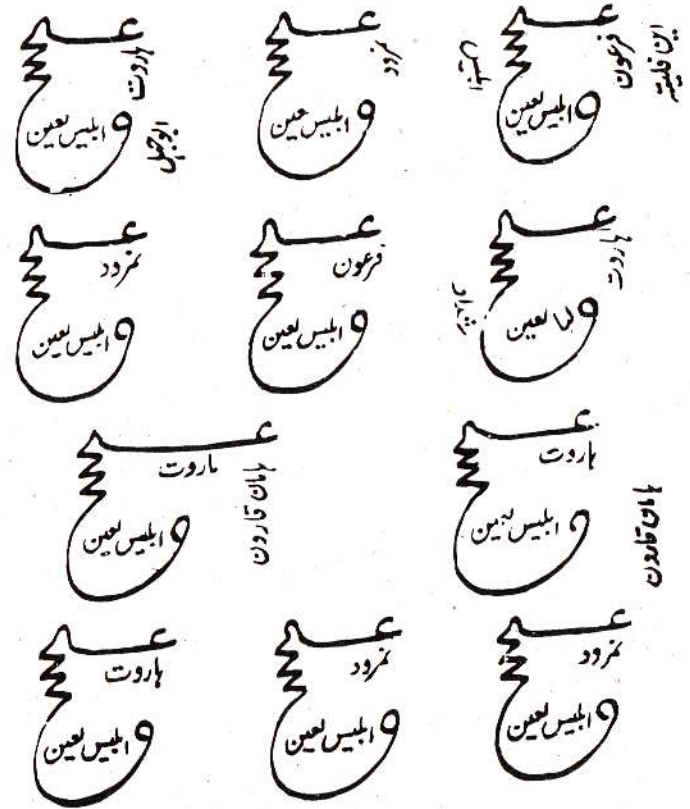 این فلیتہ
فرعون
ابلیس لعین
نمرود
ابلیس عین
ہاروت
ابلیس لعین
ابوجہل
ہاروت
لعین
شداد
فرعون
ابلیس لعین
نمرود
ابلیس لعین
ہاروت
ابلیس لہین
ہامان قارون
ماروت
ابلیس لعین
ہامان قارون
نمرود
ابلیس لعین
نمرود
ابلیس لعین
ہاروت
ابلیس لعین